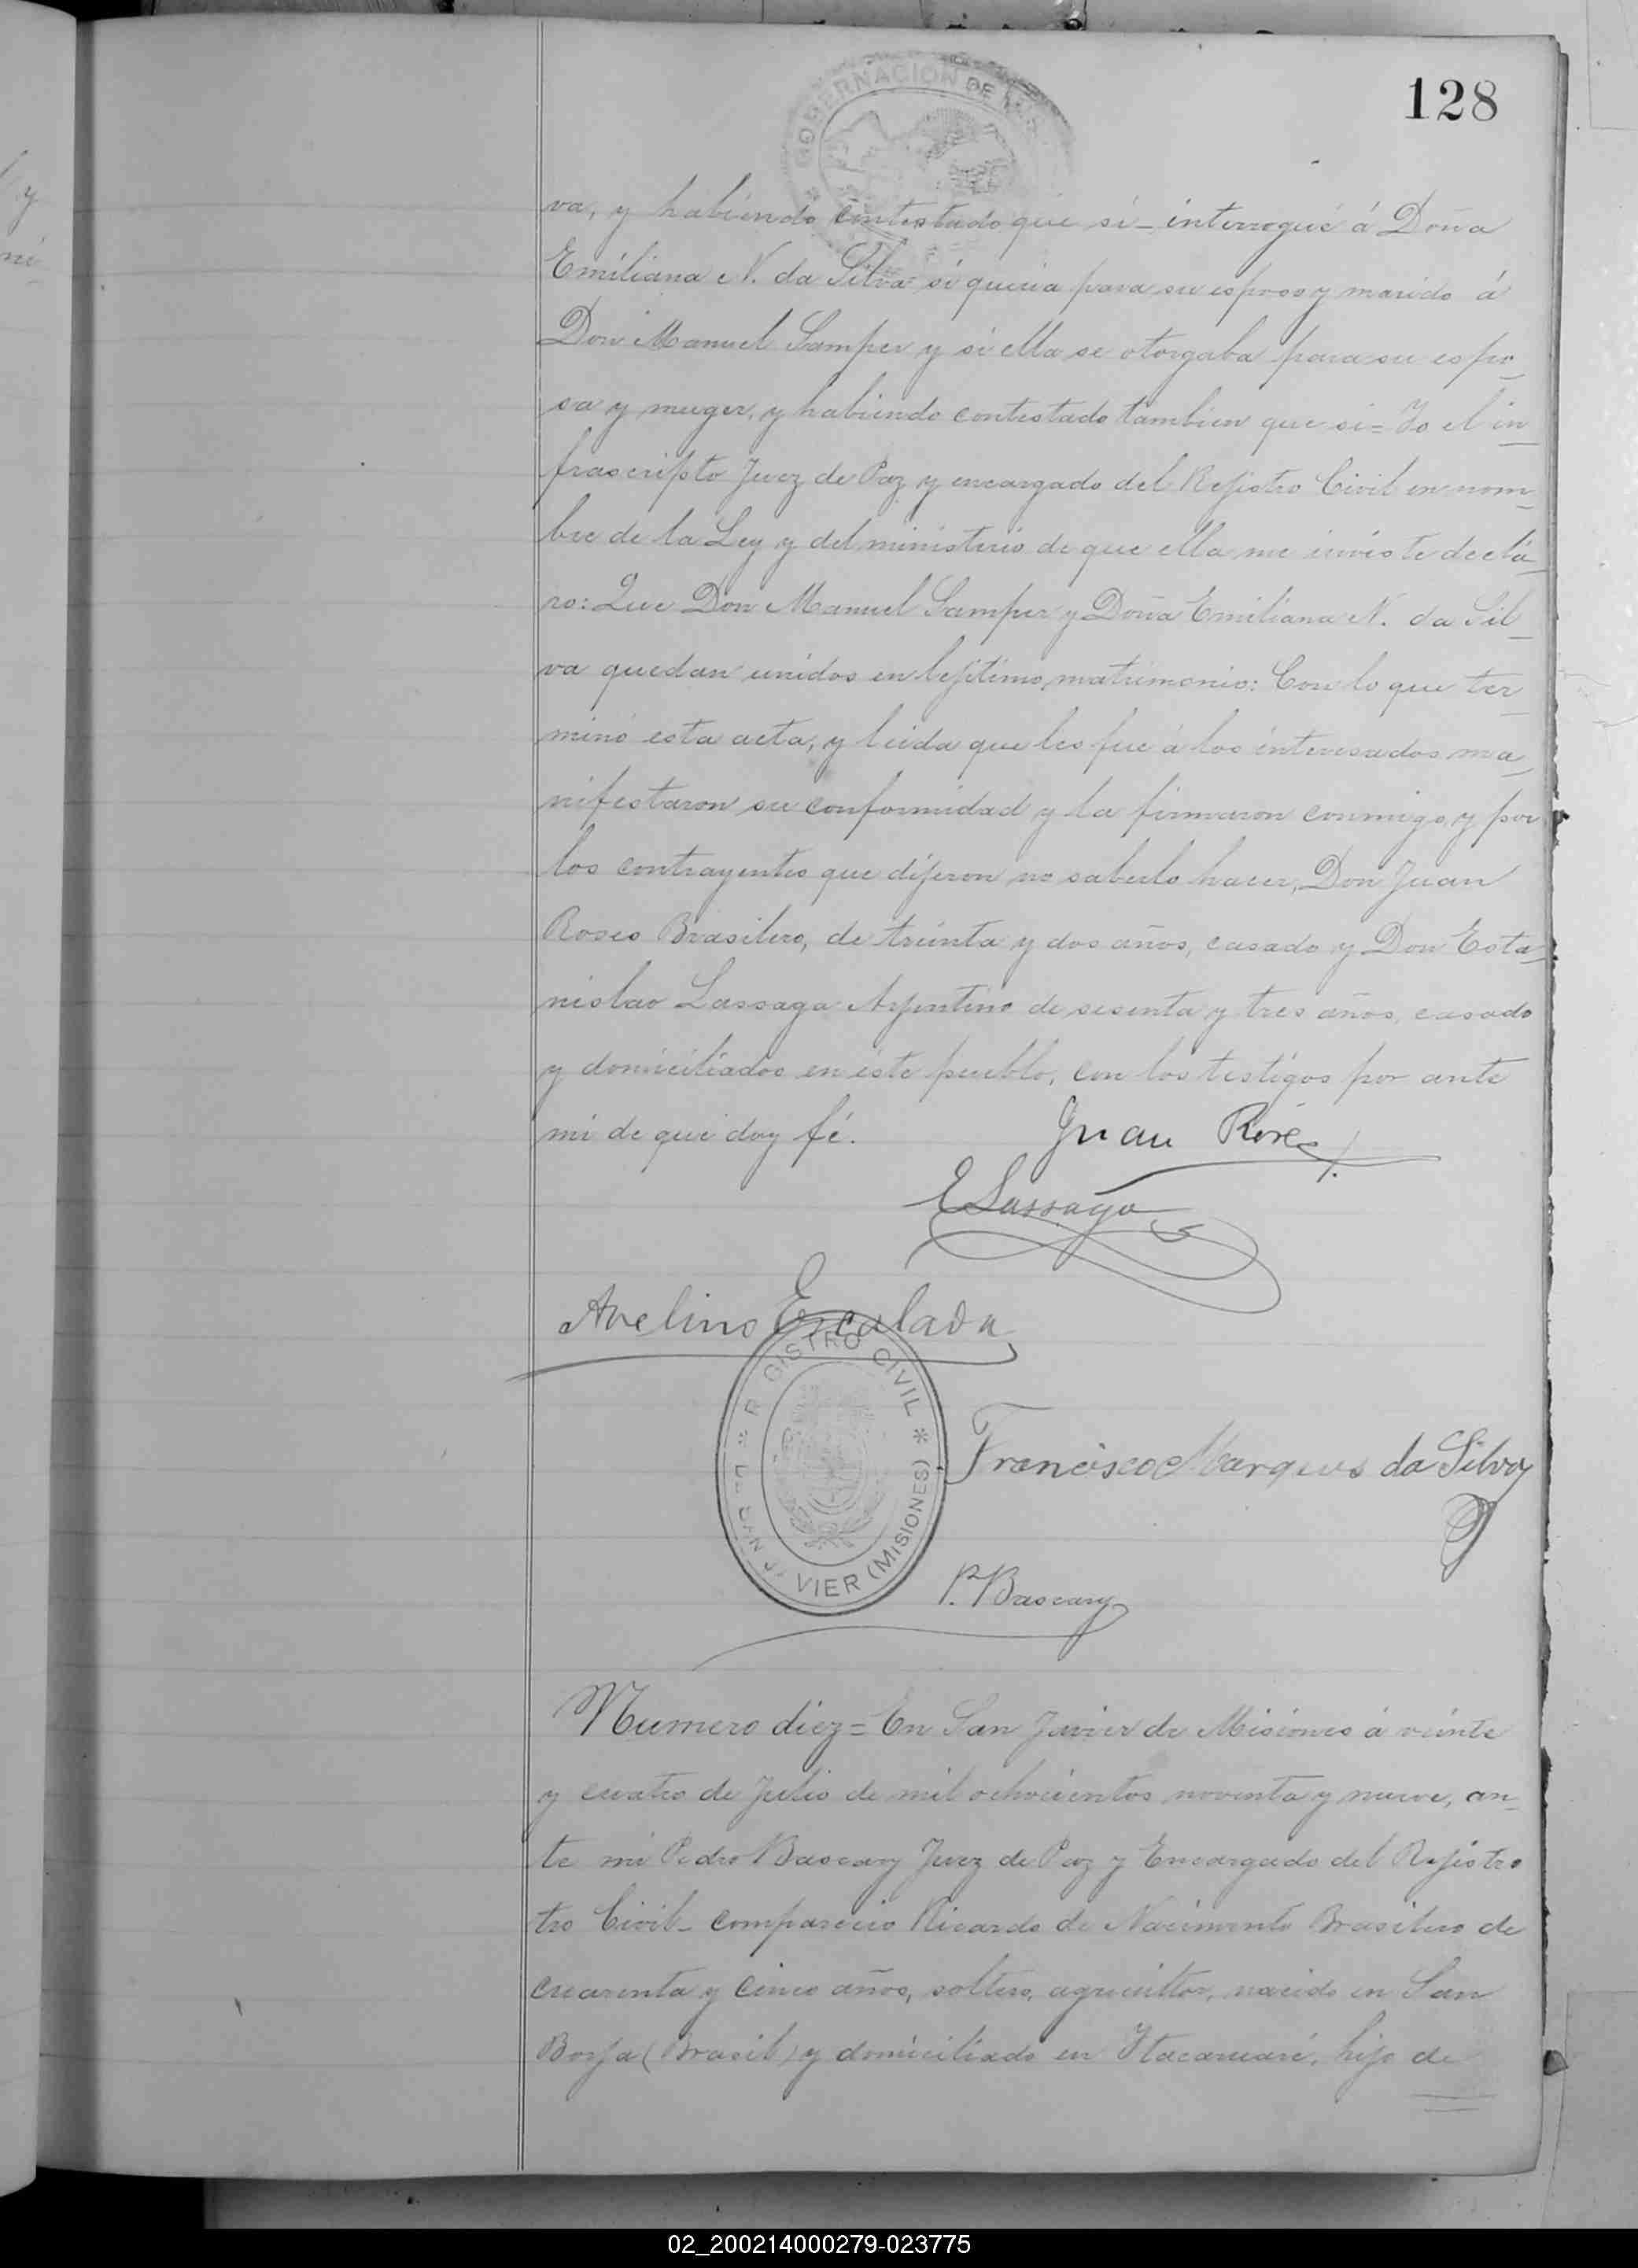 128
GOBERNACION DE
va, y habiendo contestado que si _ interrogué á Doña
Emiliana N. da Silva si queria para su esposo y marido á
Don Manuel Samper y si ella se otorgaba para su espo_
sa y muger, y habiendo contestado tambien que si = Yo el in_
frascripto Juez de Paz y encargado del Rejistro Civil en nom_
bre de la Ley y del ministerio de que ella me inviste declá_
ro: Que Don Manuel Samper y Doña Emiliana N. da Sil_
va quedan unidos en lejitimo matrimonio: Con lo que ter_
minó esta acta, y leida que les fue á los interesados ma_
nifestaron su conformidad y la firmaron conmigo, y por
los contrayentes que dijeron no saberlo hacer, Don Juan
Roses Brasilero, de treinta y dos años, casado y Don Esta_
nislao Lassaga Arjentino de sesenta y tres años, casado
y domiciliados en éste pueblo, con los testigos por ante
mi de que doy fé.
Juan
E Lassaga
Avelino Escalada
R GISTRO CIVIL * DE SAN J VIER (MISIONES)
Francisco Marques da Silva
P. Bascary
Numero diez = En San Javier de Misiones á veinte
y cuatro de Julio de mil ochocientos noventa y nueve, an_
te mi Pedro Bascary Juez de Paz y Encargado del Rejistro
tro Civil _ compareció Ricardo de Nacimento Brasilero de
cuarenta y cinco años, soltero, agricultor, nacido en San
Borja (Brasil) y domiciliado en Itacaruaré, hijo de
02_200214000279-023775